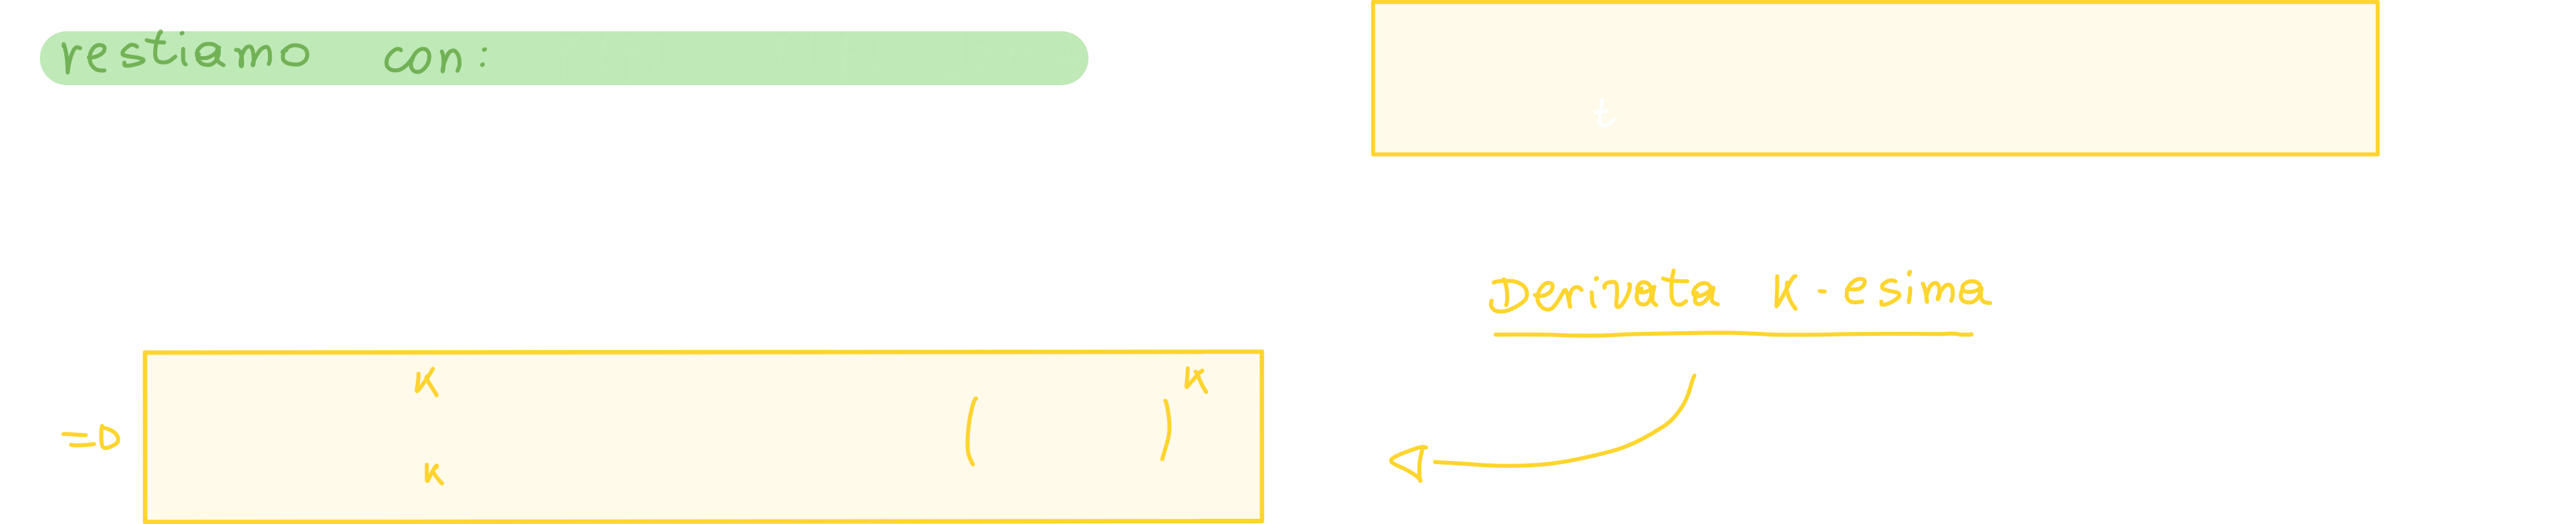 restiamo con:
t
Derivata K-esima
K
( ) K
=D
K